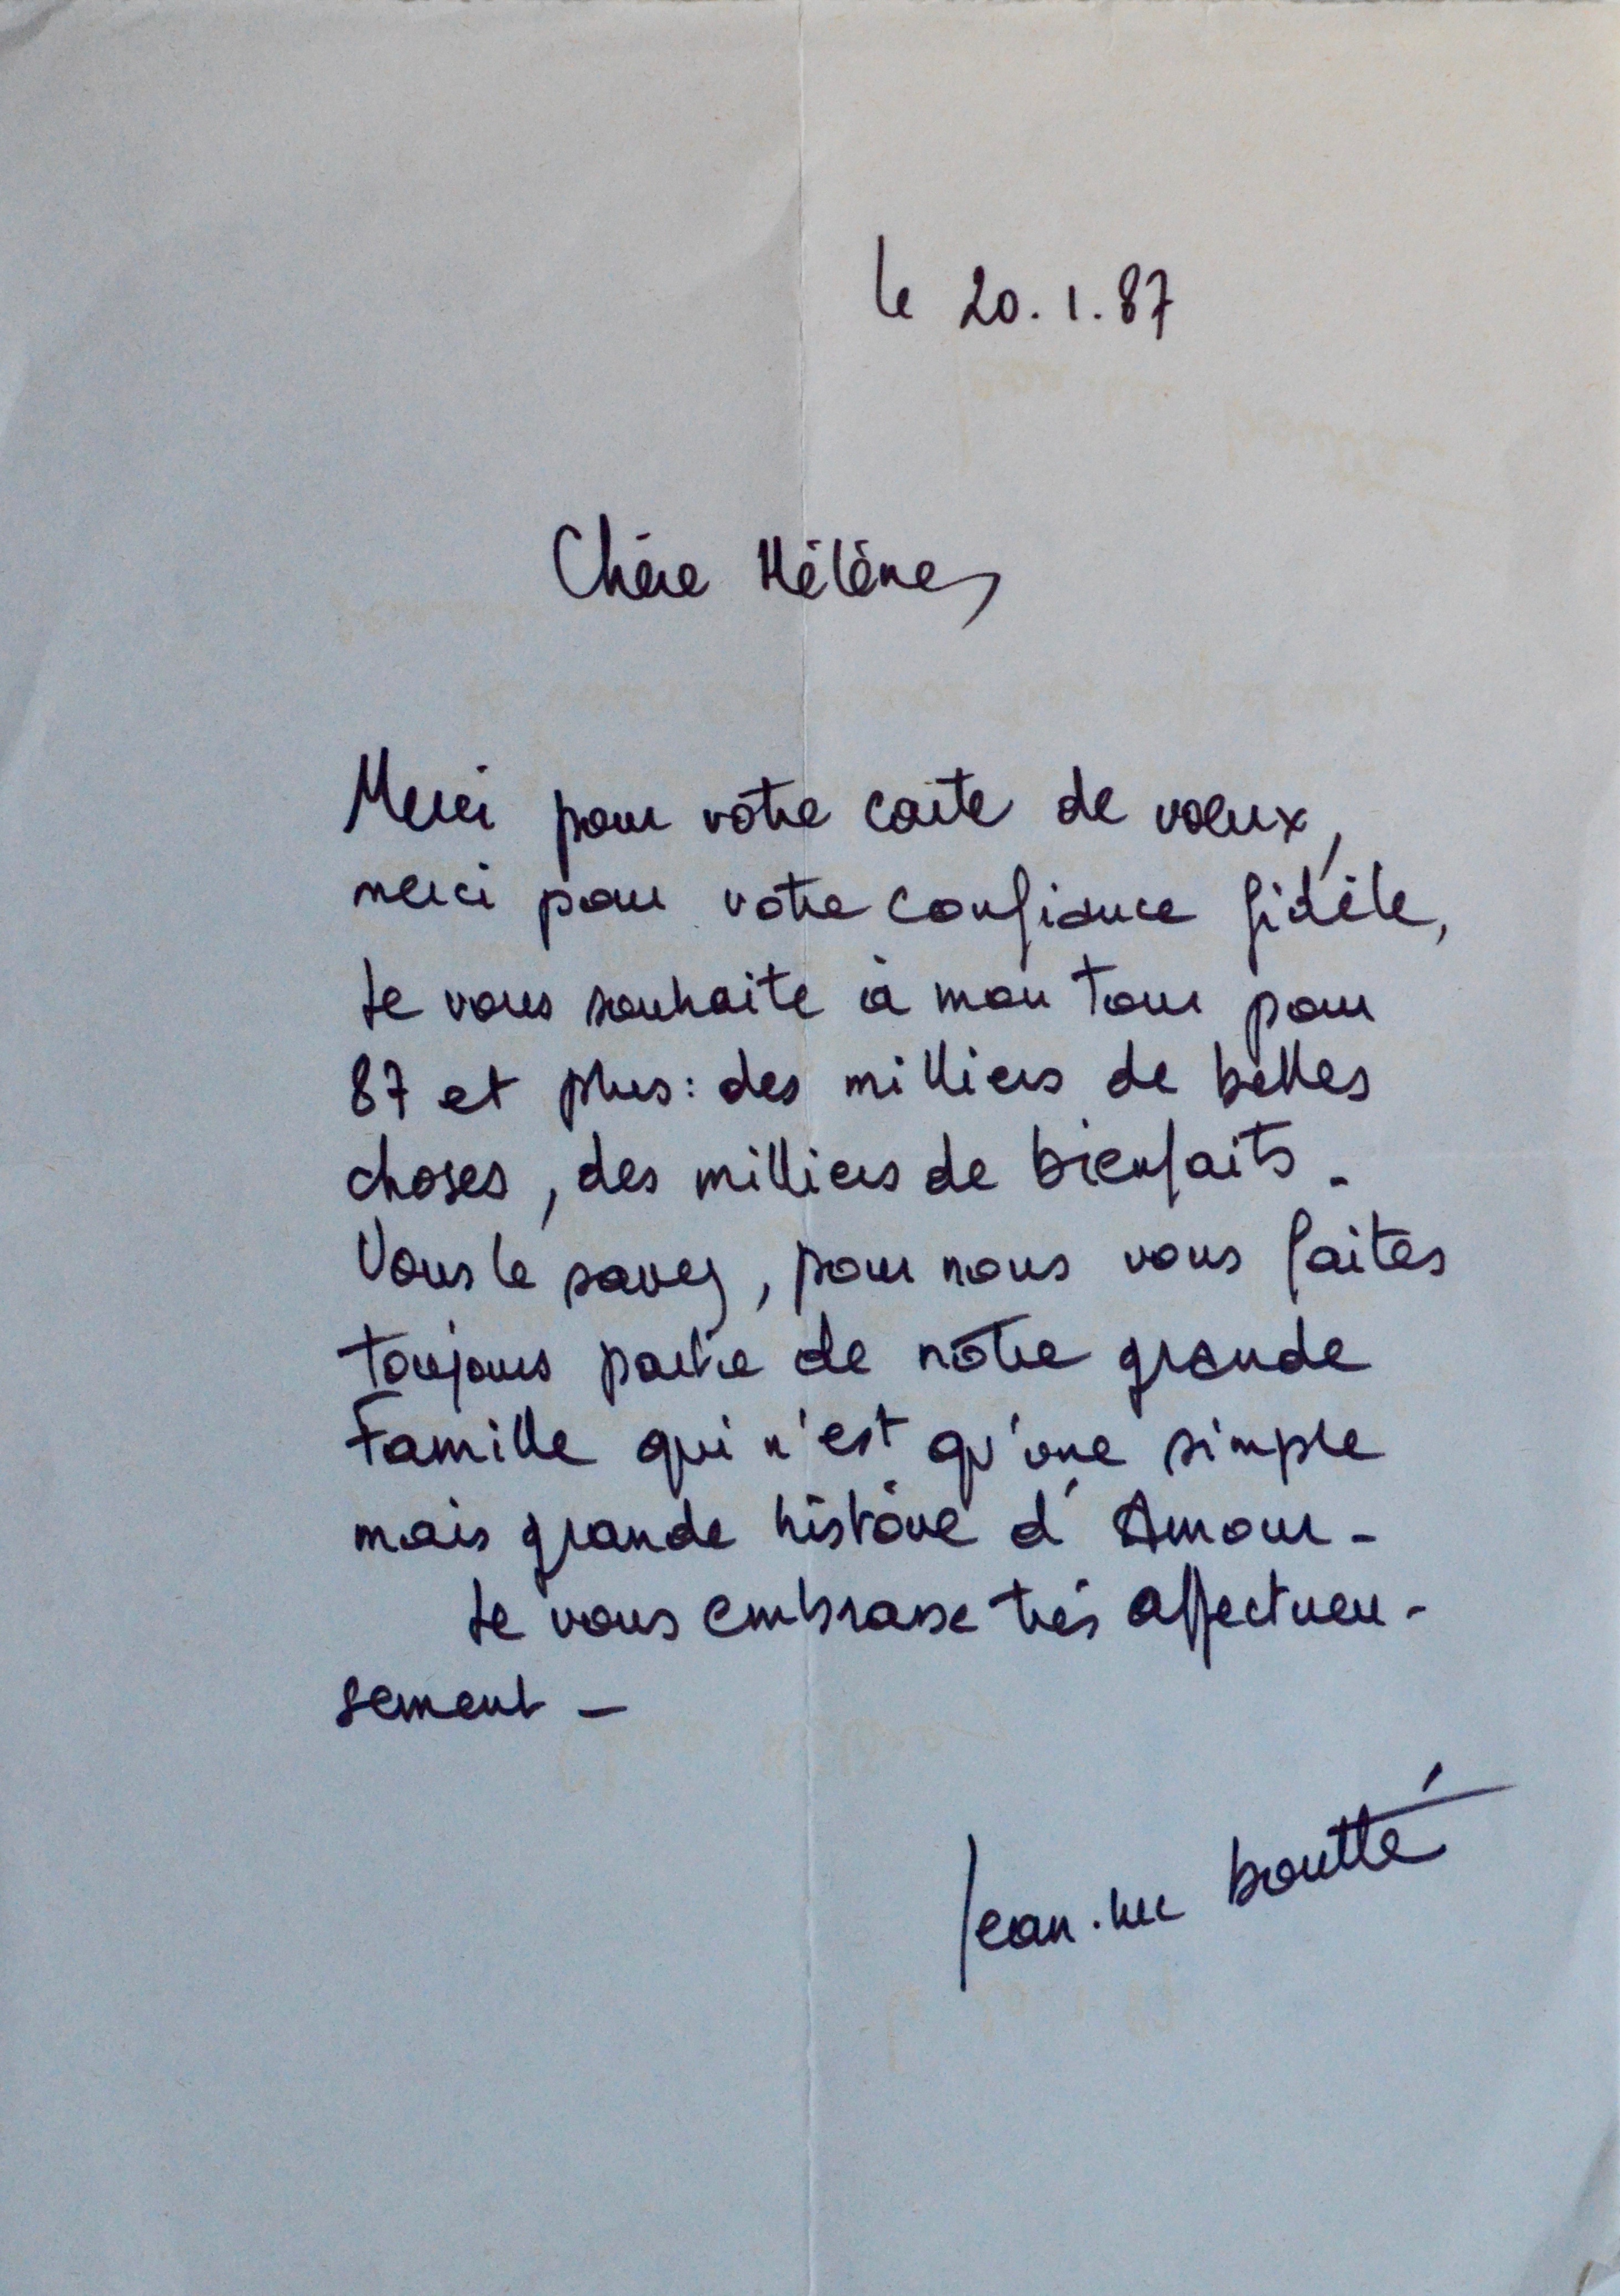 le 20.1.87
Chère Hélène,
Merci pour votre carte de voeux,
merci pour votre confiance fidèle,
Je vous souhaite à mon tour pour
87 et plus : des milliers de belles
choses, des milliers de bienfaits.
Vous le savez, pour nous vous faites
toujours partie de notre grande
Famille qui n'est qu'une simple
mais grande histoire d'Amour -
Je vous embrasse très affectueu-
sement -
Jean-Luc Boutté